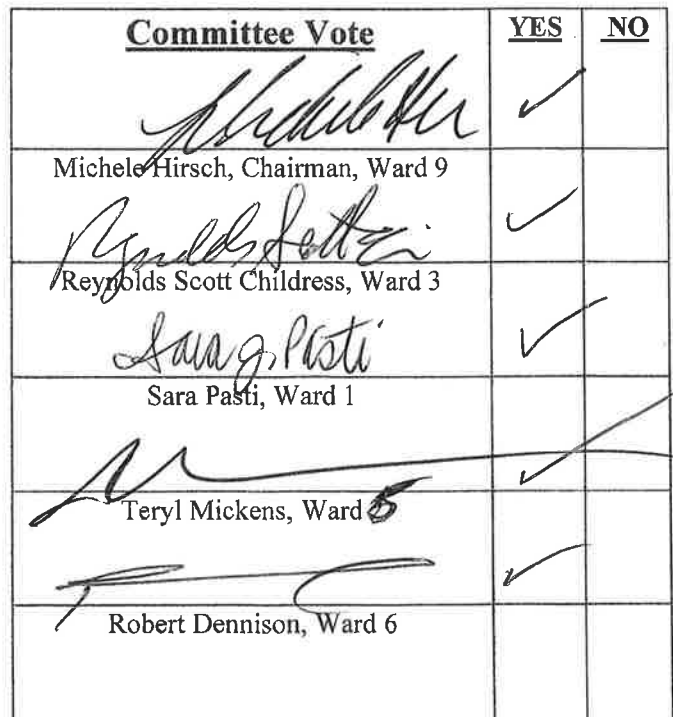 Committee Vote YES NO
✓
Michele Hirsch, Chairman, Ward 9
✓
Reynolds Scott Childress, Ward 3
Sara J. Pasti ✓
Sara Pasti, Ward 1
✓
Teryl Mickens, Ward 5
✓
Robert Dennison, Ward 6